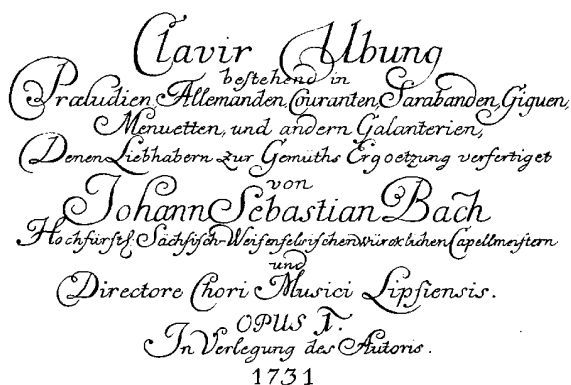 Clavir Ubung
bestehend in
Præludien, Allemanden, Couranten, Sarabanden, Giguen,
Menuetten, und andern Galanterien,
Denen Liebhabern zur Gemüths Ergoetzung verfertiget
von
Johann Sebastian Bach
Hochfürstl: Sächsisch-Weisenfelsischen würcklichen Capellmeistern
und
Directore Chori Musici Lipsiensis.
OPUS 1.
In Verlegung des Autoris.
1731